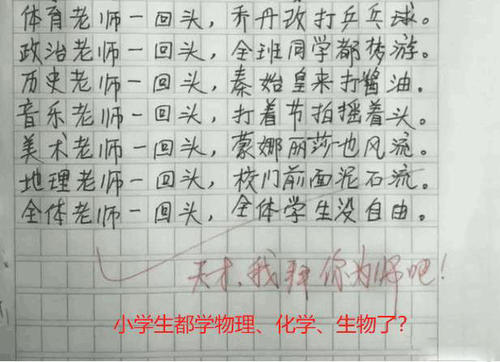 体育老师一回头，乔丹改打乒乓球。
政治老师一回头，全班同学都梦游。
历史老师一回头，秦始皇来打酱油。
音乐老师一回头，打着节拍摇着头。
美术老师一回头，蒙娜丽莎也风流。
地理老师一回头，校门前面泥石流。
全体老师一回头，全体学生没自由。
天才，我拜你为师吧！
小学生都学物理、化学、生物了？